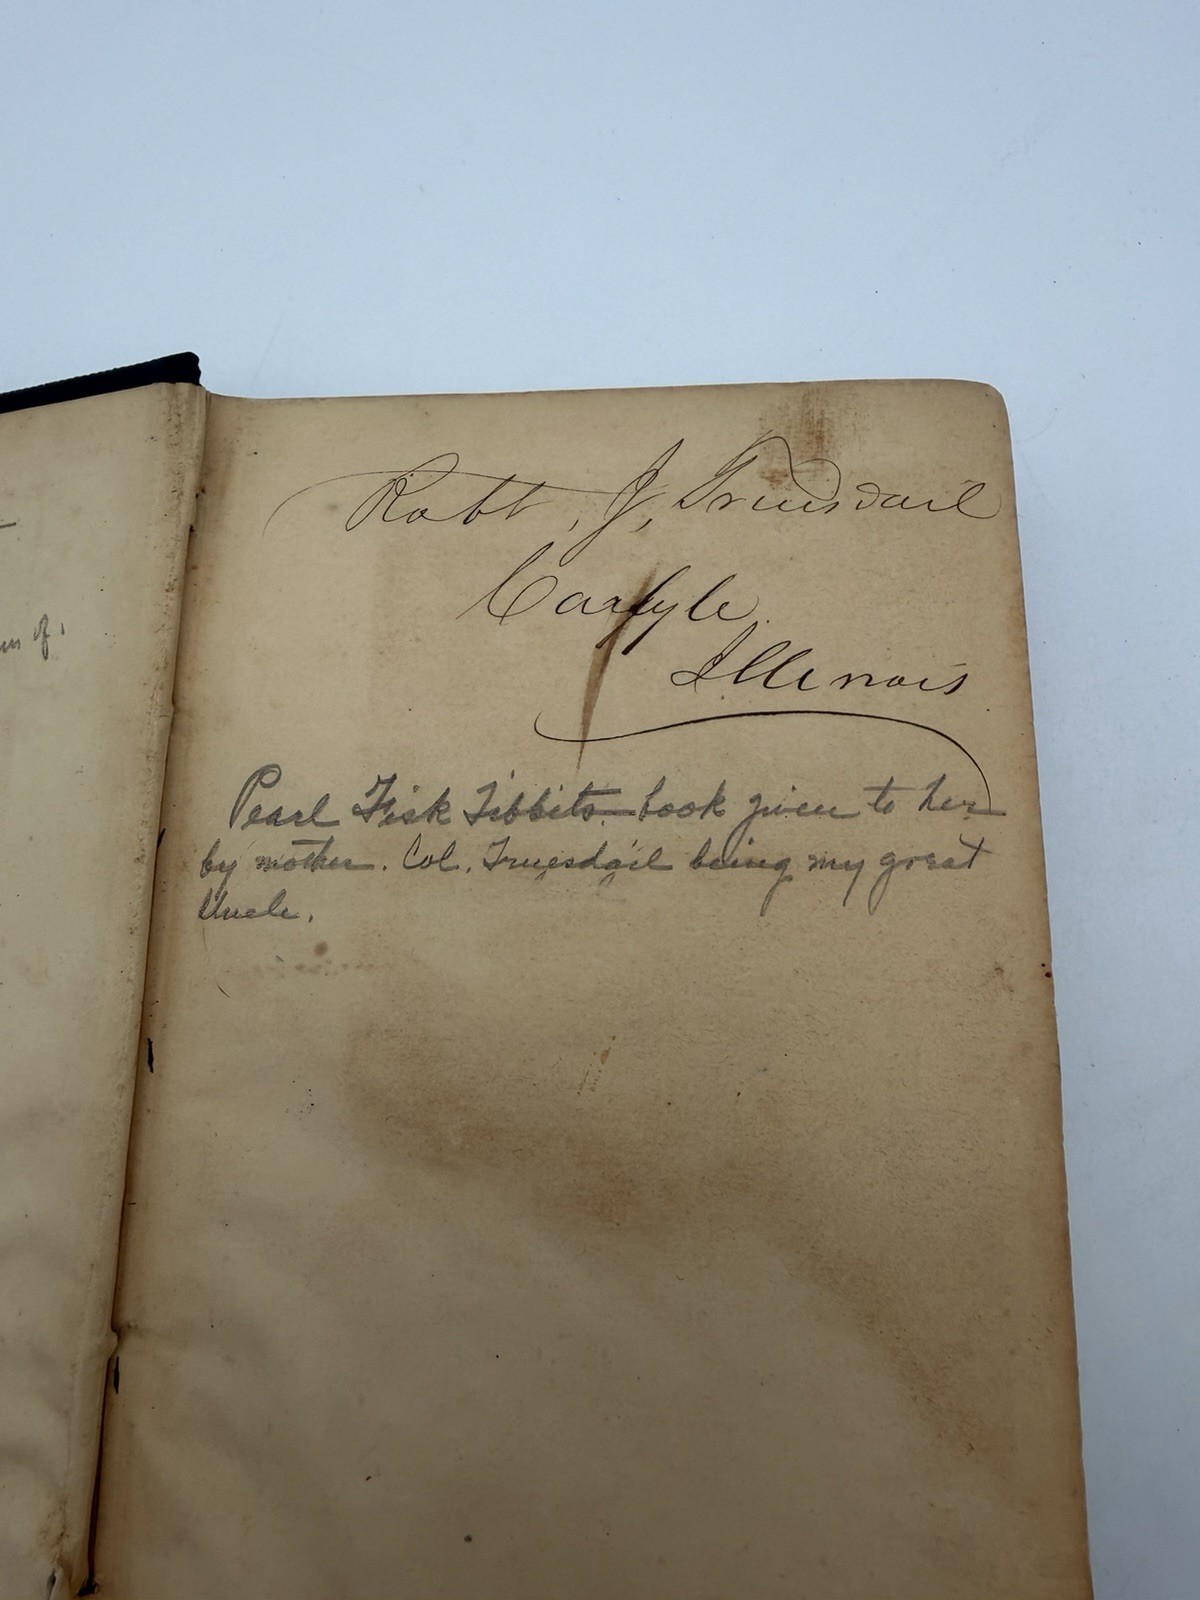 of.
Robt. J. Truesdail
Carlyle
Illinois
Pearl Fisk Tibbits - book given to her
by mother. Col. Truesdail being my great
Uncle.